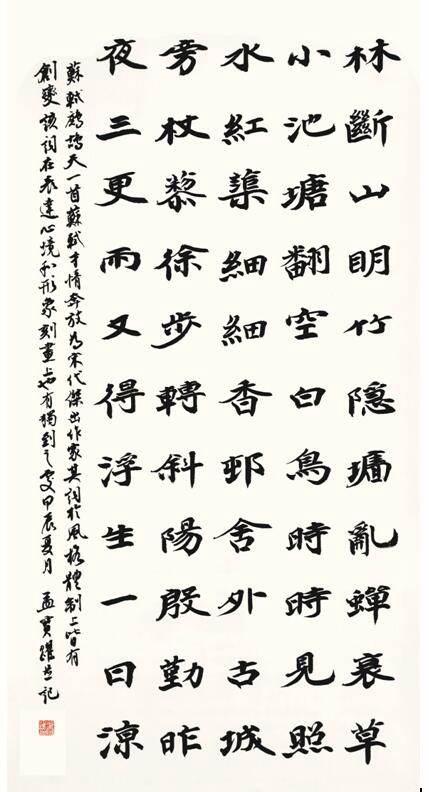 林斷山明竹隱墻亂蟬衰草
小池塘翻空白鳥時時見照
水紅蕖細細香邨舍外古城
旁杖藜徐步轉斜陽殷勤昨
夜三更雨又得浮生一日涼
蘇軾鷓鴣天一首蘇軾才情奔放為宋代傑出作家其詞於風格體制上皆有
創變該詞在表達心境和形象刻畫上也有獨到之處甲辰夏月 孟 躍并記